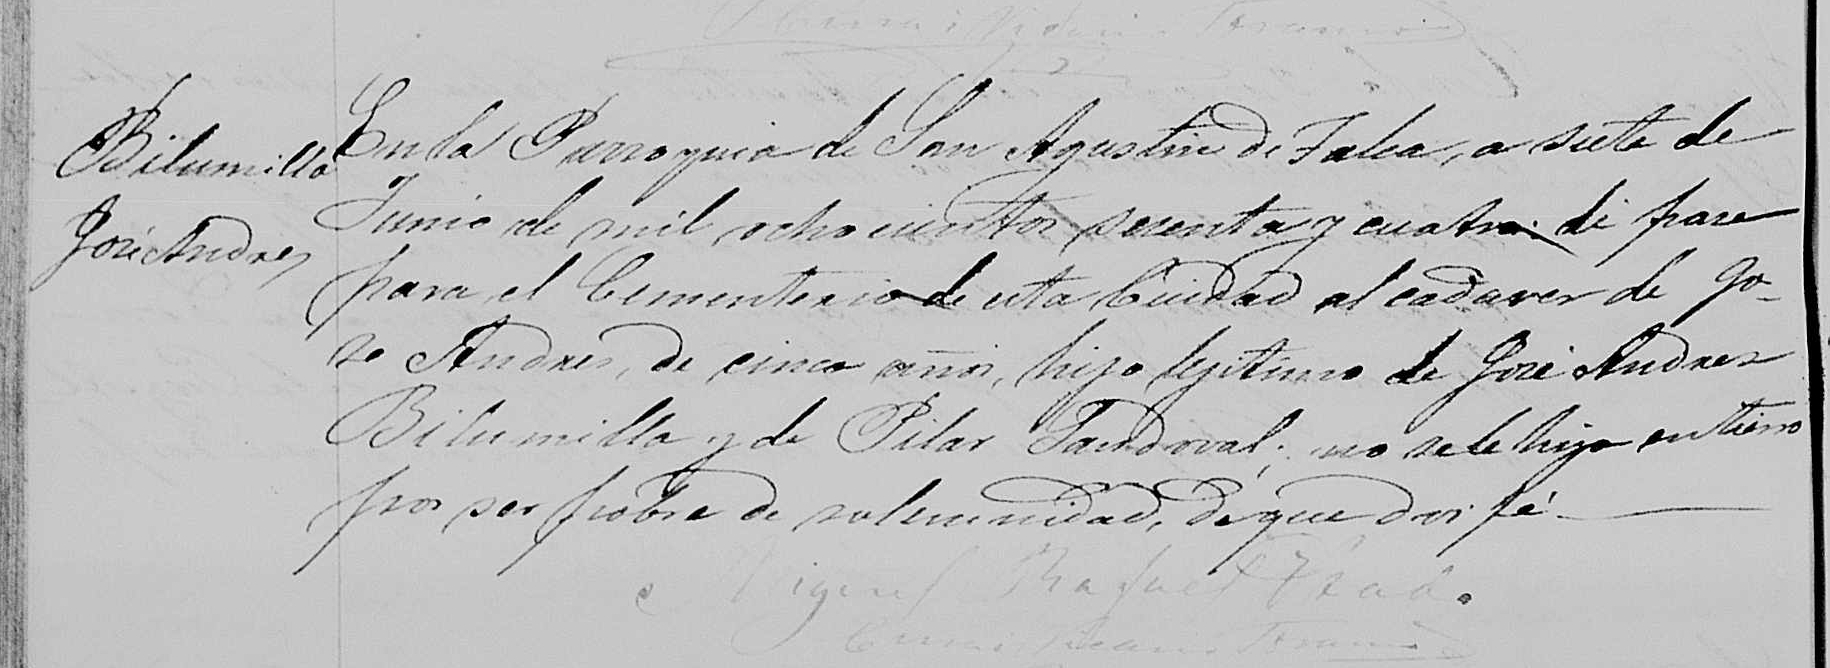 Cura i Vicario Foraneo
Bilumilla
José Andres
En la Parroquia de San Agustin de Talca, a siete de
Junio de mil ochocientos sesenta y cuatro: di pase
para el Cementerio de esta Ciudad al cadaver de Jo-
se Andres, de cinco años, hijo lejitimo de José Andres
Bilumilla y de Pilar Sandoval; no se le hizo entierro
por ser pobre de solemnidad, de que doi fé
Miguel Rafael Prado.
Cura i Vicario Foraneo